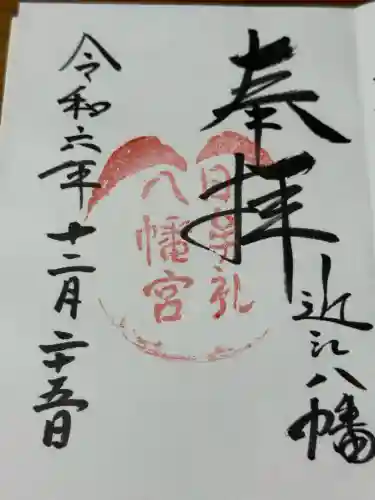 奉拝
近江八幡
日牟礼
八幡宮
令和六年十二月二十五日